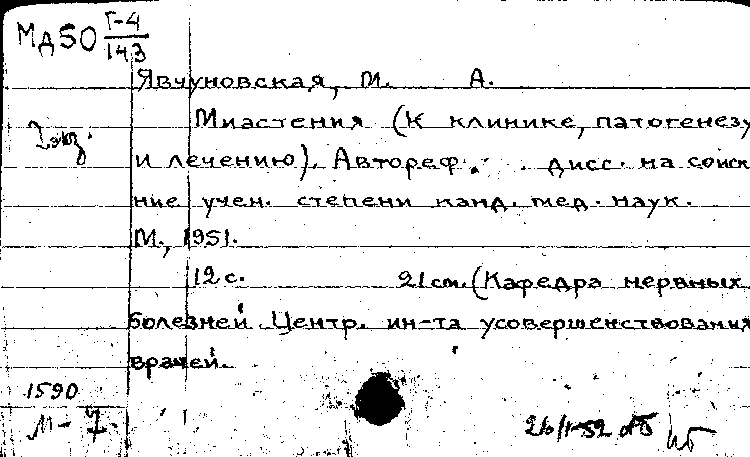 Мд50 Г-4
143
Явчуновская, М. А.
Миастения (К клинике, патогенезу
и лечению). Автореф. дисс. на соиск
ние учен. степени канд. мед. наук.
М., 1951.
12 с. 21 см. (Кафедра нервных
болезней Центр. ин-та усовершенствования
врачей.
1590